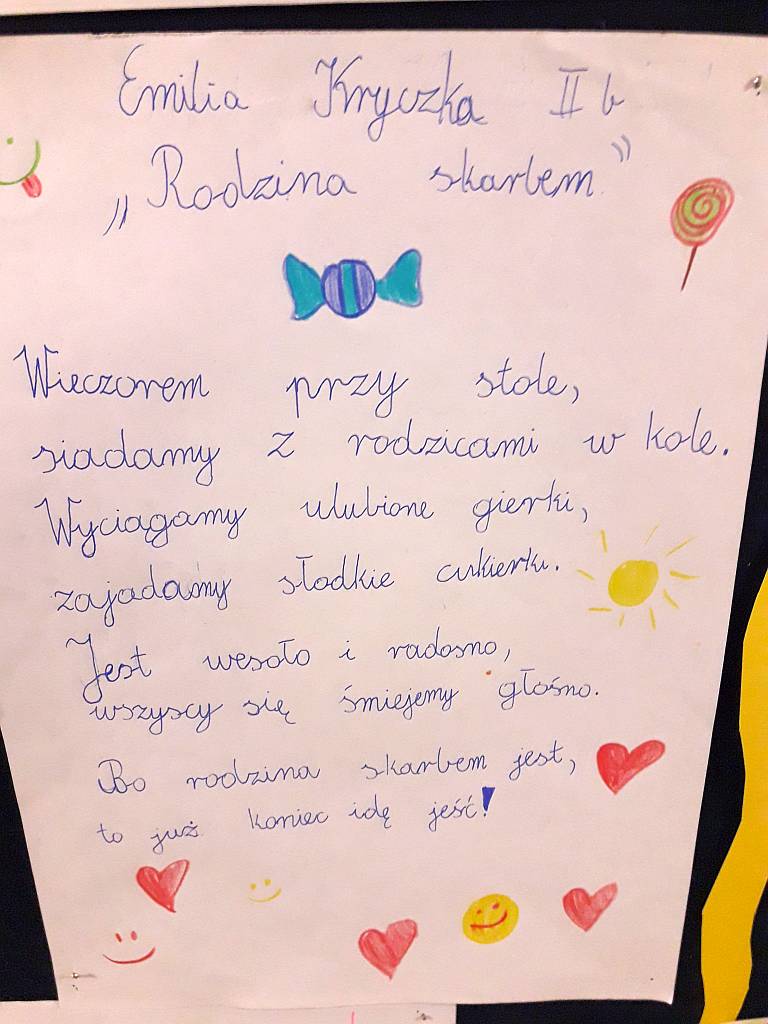 Emilia Kryczka II b
„Rodzina skarbem"
Wieczorem przy stole,
siadamy z rodzicami w kole.
Wyciągamy ulubione gierki,
zajadamy słodkie cukierki.
Jest wesoło i radosno,
wszyscy się śmiejemy głośno.
Bo rodzina skarbem jest,
to już koniec idę jeść!